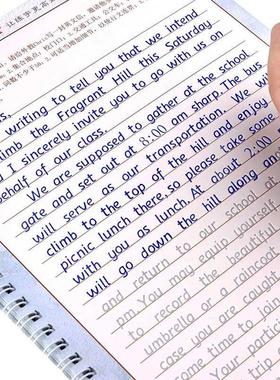 writing to tell you that we intend
climb the Fragrant Hill this Saturday
I sincerely invite you to go with us on
behalf of our class.
We are supposed to gather at the school
gate and set out at 8:00 am sharp. The bus
will serve as our transportation. We will
climb to the top of the hill and enjoy
picnic lunch there, so please take some
with you as lunch. At about 2:00
will go down the hill along
and return to our school at
pm. You may equip yourself
to record the beautiful
umbrella or a raincoat
case you are caught
some time to join
Your
trip